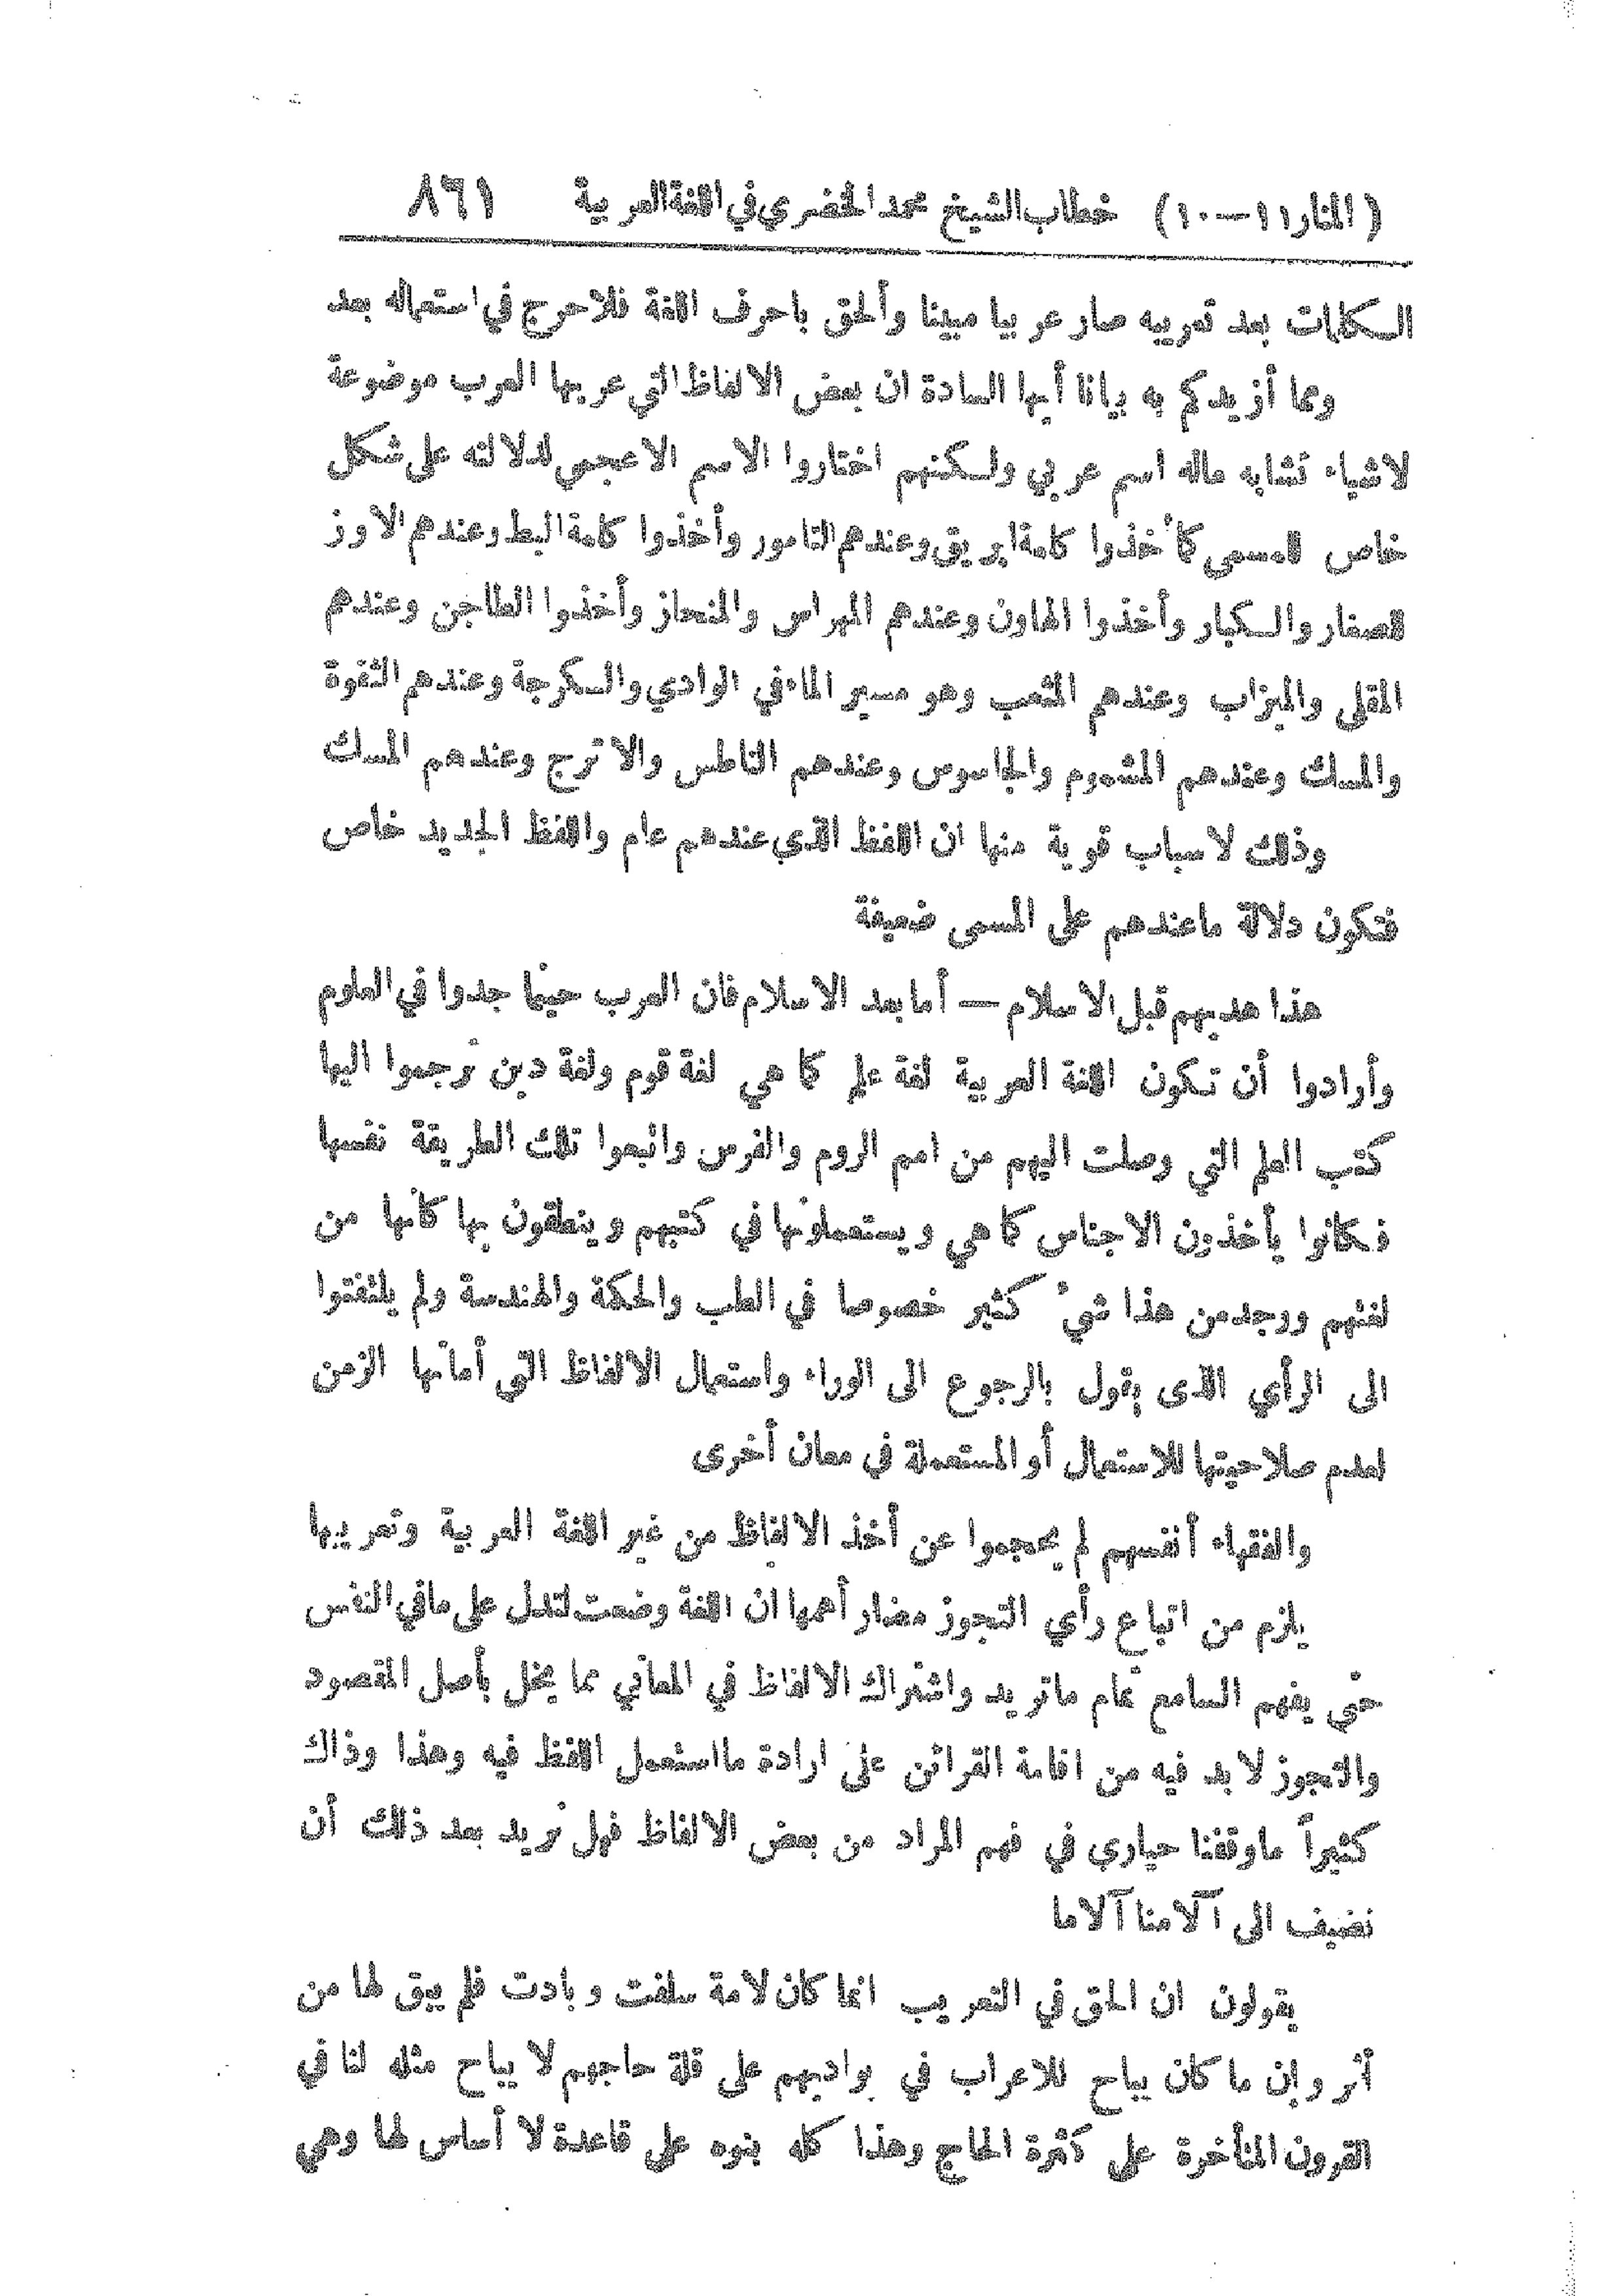 (المنار ١١ — ١٠) خطاب الشيخ محمد الخضري في اللغة العربية ٨٦١
الكلمات بعد تعريبه صار عربيا مبينا وألحق باحرف اللغة فلا حرج في استعماله بعد
ومما أزيدكم به بيانا أيها السادة ان بعض الالفاظ التي عربها العرب موضوعة
لاشياء تشابه ماله اسم عربي ولكنهم اختاروا الاسم الاعجمي لدلالته على شكل
خاص للمسمى كأخذوا كلمة ابريق وعندهم التامور وأخذوا كلمة البط وعندهم الاوز
للصغار والكبار وأخذوا الهاون وعندهم المهراس والمنحاز وأخذوا الطاجن وعندهم
المقلى والميزاب وعندهم المثعب وهو مسير الماء في الوادي والسكرجة وعندهم الثقوة
والمسك وعندهم المشموم والجاسوس وعندهم الناطس والاترج وعندهم المسك
وذلك لاسباب قوية منها ان اللفظ الذي عندهم عام واللفظ الجديد خاص
فتكون دلالة ماعندهم على المسمى ضعيفة
هذا هديهم قبل الاسلام — أما بعد الاسلام فان العرب حينما جدوا في العلوم
وأرادوا أن تكون اللغة العربية لغة علم كما هي لغة قوم ولغة دين ترجموا اليها
كتب العلم التي وصلت اليهم من امم الروم والفرس واتبعوا تلك الطريقة نفسها
فكانوا يأخذون الاجناس كما هي ويستعملونها في كتبهم وينطقون بها كأنها من
لغتهم ووجد من هذا شيء كثير خصوصا في الطب والحكمة والهندسة ولم يلتفتوا
الى الرأي الذى يقول بالرجوع الى الوراء واستعمال الالفاظ التي أماتها الزمن
لعدم صلاحيتها للاستعمال أو المستعملة في معان أخرى
والفقهاء أنفسهم لم يحجموا عن أخذ الالفاظ من غير اللغة العربية وتعريبها
يلزم من اتباع رأي التجوز مضار أهمها ان اللغة وضعت لتدل على مافي النفس
حتى يفهم السامع تمام ماتريد واشتراك الالفاظ في المعاني مما يخل بأصل المقصود
والتجوز لا بد فيه من اقامة القرائن على ارادة ما استعمل اللفظ فيه وهذا وذاك
كثيراً ماوقفنا حيارى في فهم المراد من بعض الالفاظ فهل نريد بعد ذلك أن
نضيف الى آلامنا آلاما
يقولون ان الحق في التعريب انما كان لامة سلفت وبادت فلم يبق لها من
أثر وإن ما كان يباح للاعراب في بواديهم على قلة حاجهم لا يباح مثله لنا في
القرون المتأخرة على كثرة الحاج وهذا كله بنوه على قاعدة لا أساس لها وهي